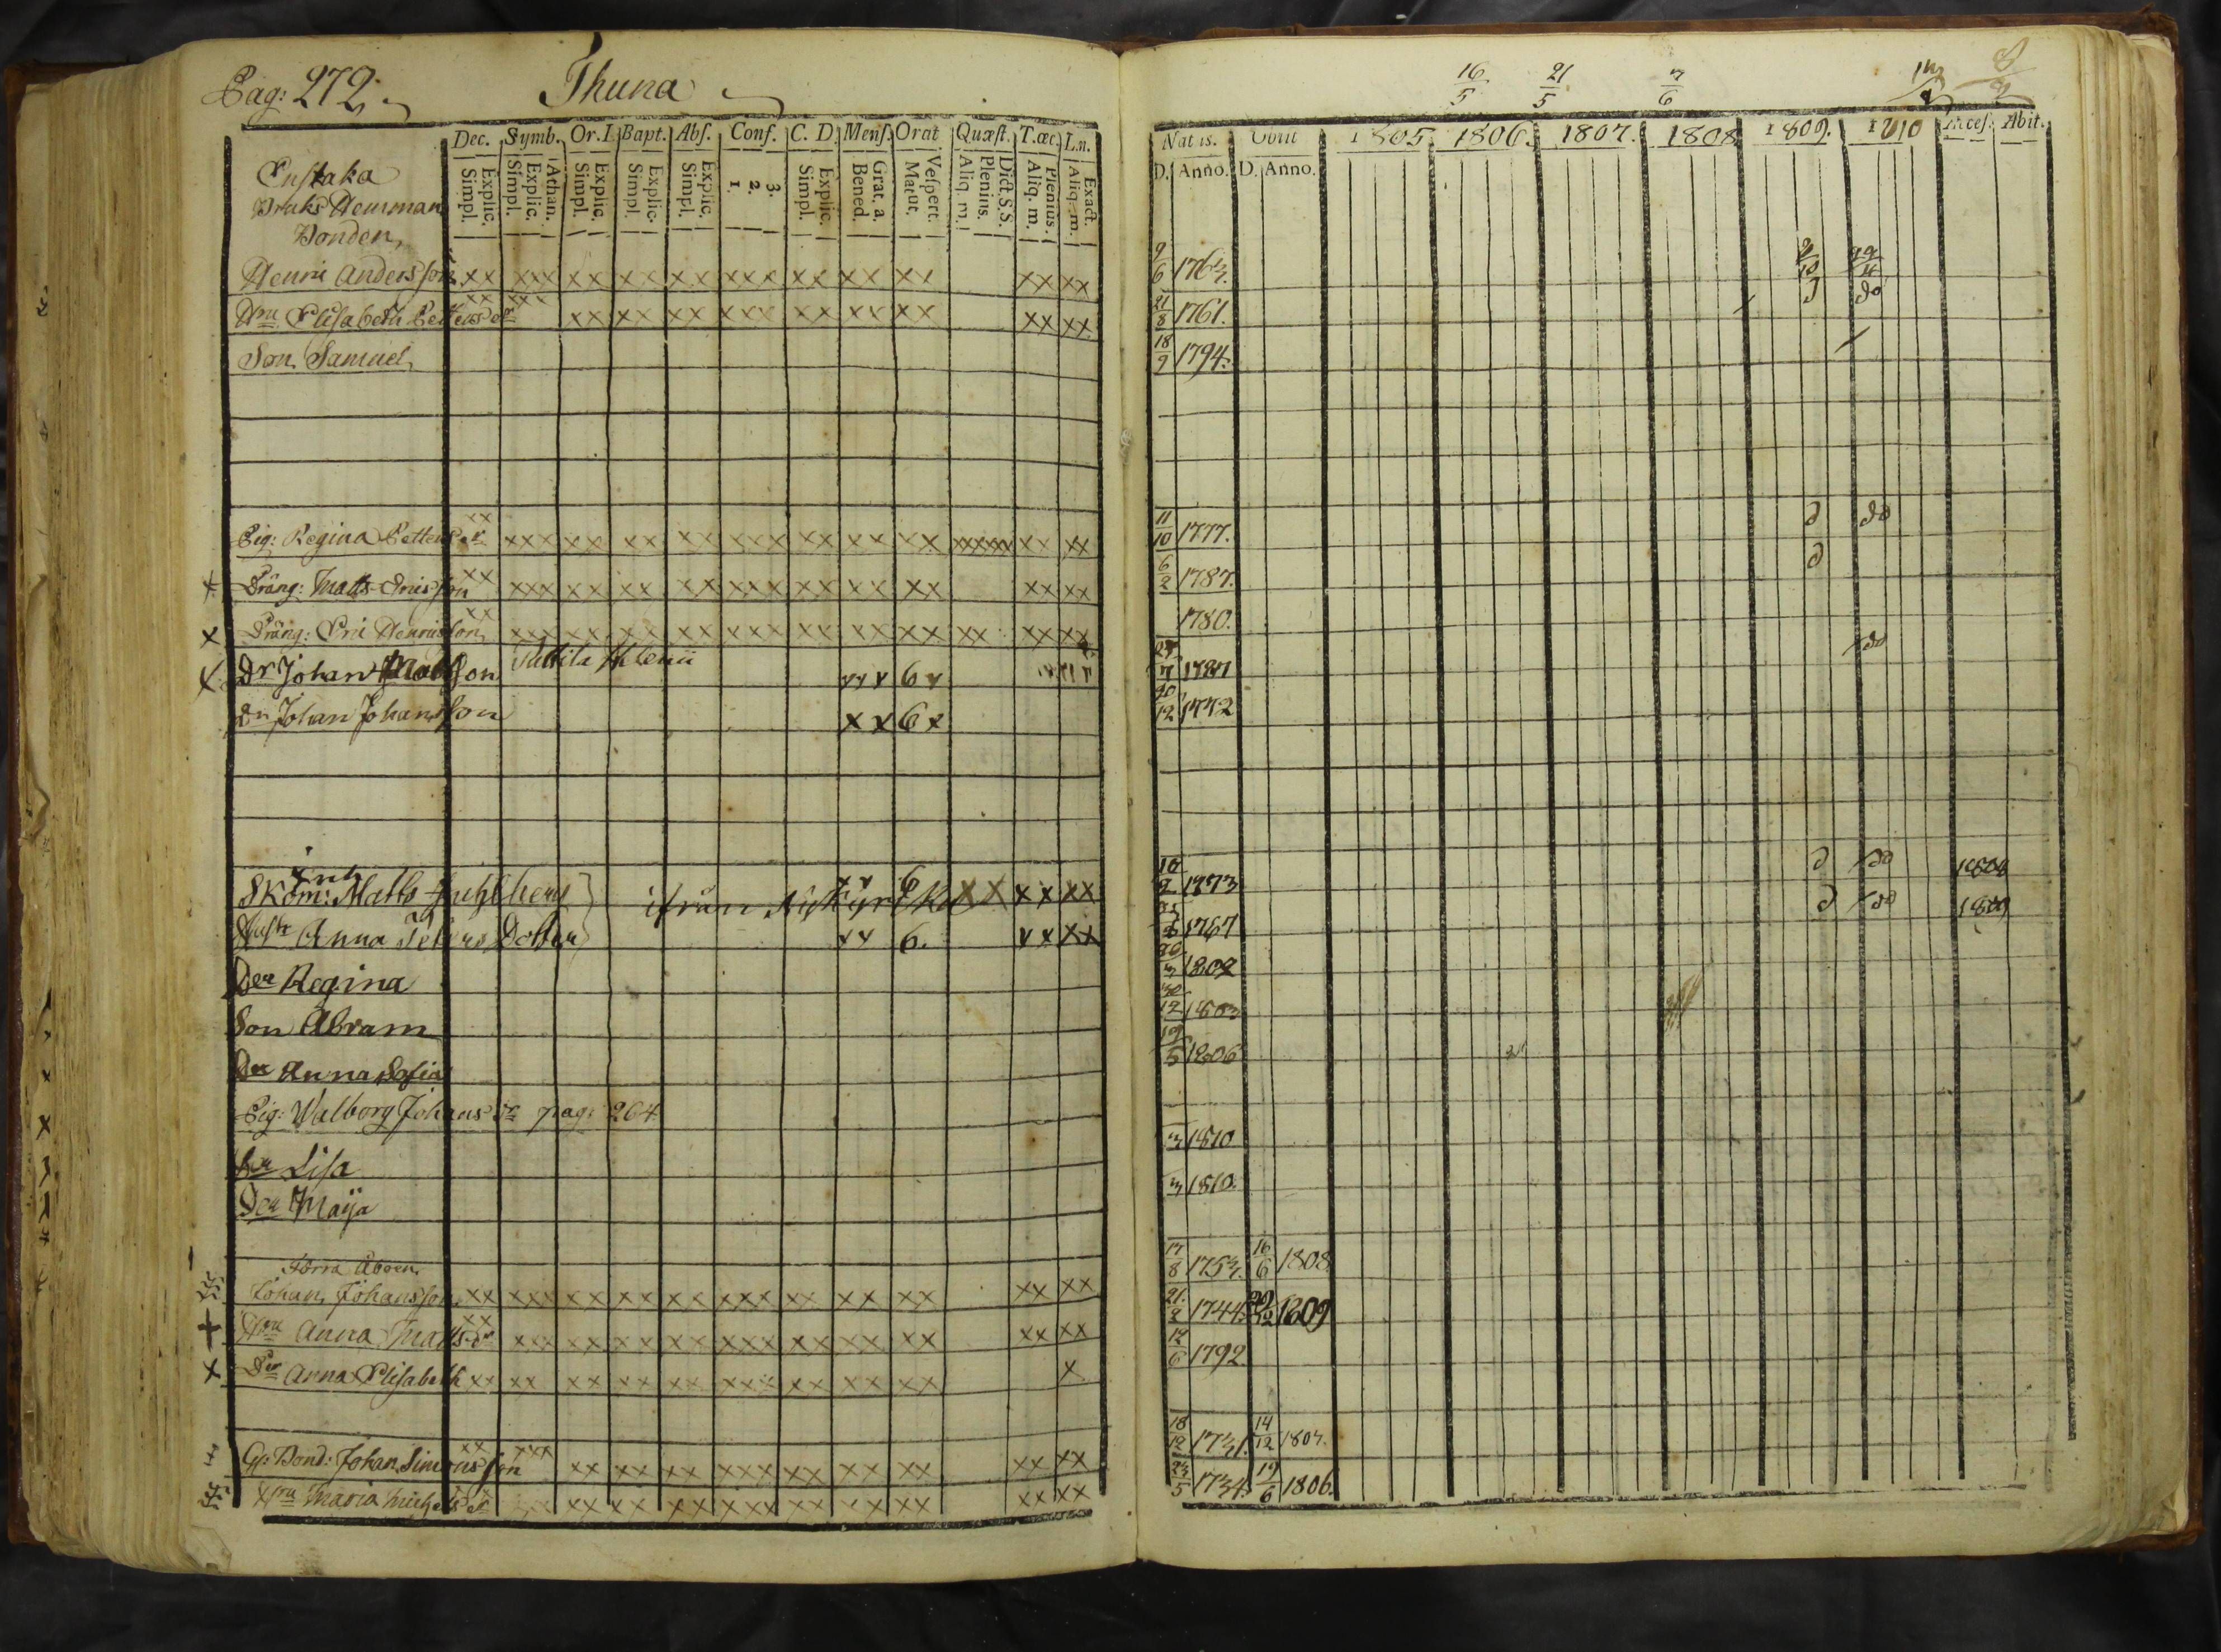 Pag: 272. Thuna
Dec. Symb. Or.D. Bapt. Abſ. Conf. C. D. Menſ. Orat Quæſt. T.œc. L.n.
Explic. Simpl. Athan. Explic. Simpl. Explic. Simpl. Explic. Simpl. Explic. Simpl. 3. 2. 1. Explic. Simpl. Grat. a. Bened. Veſpert. Matut. Dict.S.S. Plenius. Aliq. m. Plenius. Aliq. m. Exact. Aliq. m.
Enstaka
Bruks Hemman
Bonden
Henric Andersson xx xxx xx xx xx xxx xx xx xx xx xx
Hru Elisabeth Petters dr xx xxx xx xx xx xxx xx xx xx xx xx
Son Samuel
Pig: Regina Petters dr xx xxx xx xx xx xxx xx xx xx xxxxxx xx xx
x Dräng: Matts Ericsson xx xxx xx xx xx xxx xx xx xx xx xx
x Dräng: Eric Henricsson xx xxx xx xx xx xxx xx xx xx xx xx xx
x Dr Johan Mattsson
Dn Johan Johansson x x 6 x
inh
Skom: Matts ifrån Nykyrcka xx xx xx
Hustr Anna Peters Dotter xx 6. xx xx
Der Regina
Son Abram
Der Anna Sofia
Pig: Walborg Johans dr pag: 264
Der Lisa
Der Maija
Förra Åboen
Johan Johansson xx xxx xx xx xx xxx xx xx xx xx xx
Hru Anna Matts dr xx xxx xx xx xx xxx xx xx xx xx xx
x Dr Anna Elisabeth xx xx xx xx xx xxx xx xx xx x
G: Bond: Johan Simonsson xx xxx xx xx xx xxx xx xx xx xx xx
Hru Maria Michels dr xx xx xx xxx xx xx xx xx xx
16/5 21/5 7/6
Nat is. Obiit 1805. 1806. 1807. 1808 1809. 1810 Acceſ. Abit.
D. Anno. D. Anno.
9/6 1763.
21/8 1761. do
18/9 1794.
11/10 1777. do
6/2 1787.
1780.
1787 do
1772
1773 do 1808
1767 do 1809
1802
30/12 1803
19/5 1806
3 1810
3 1810.
17/8 1753. 16/6 1808
21/2 1744. 1809
12/6 1792
18/12 1731. 14/12 1807.
23/5 1734. 19/6 1806.